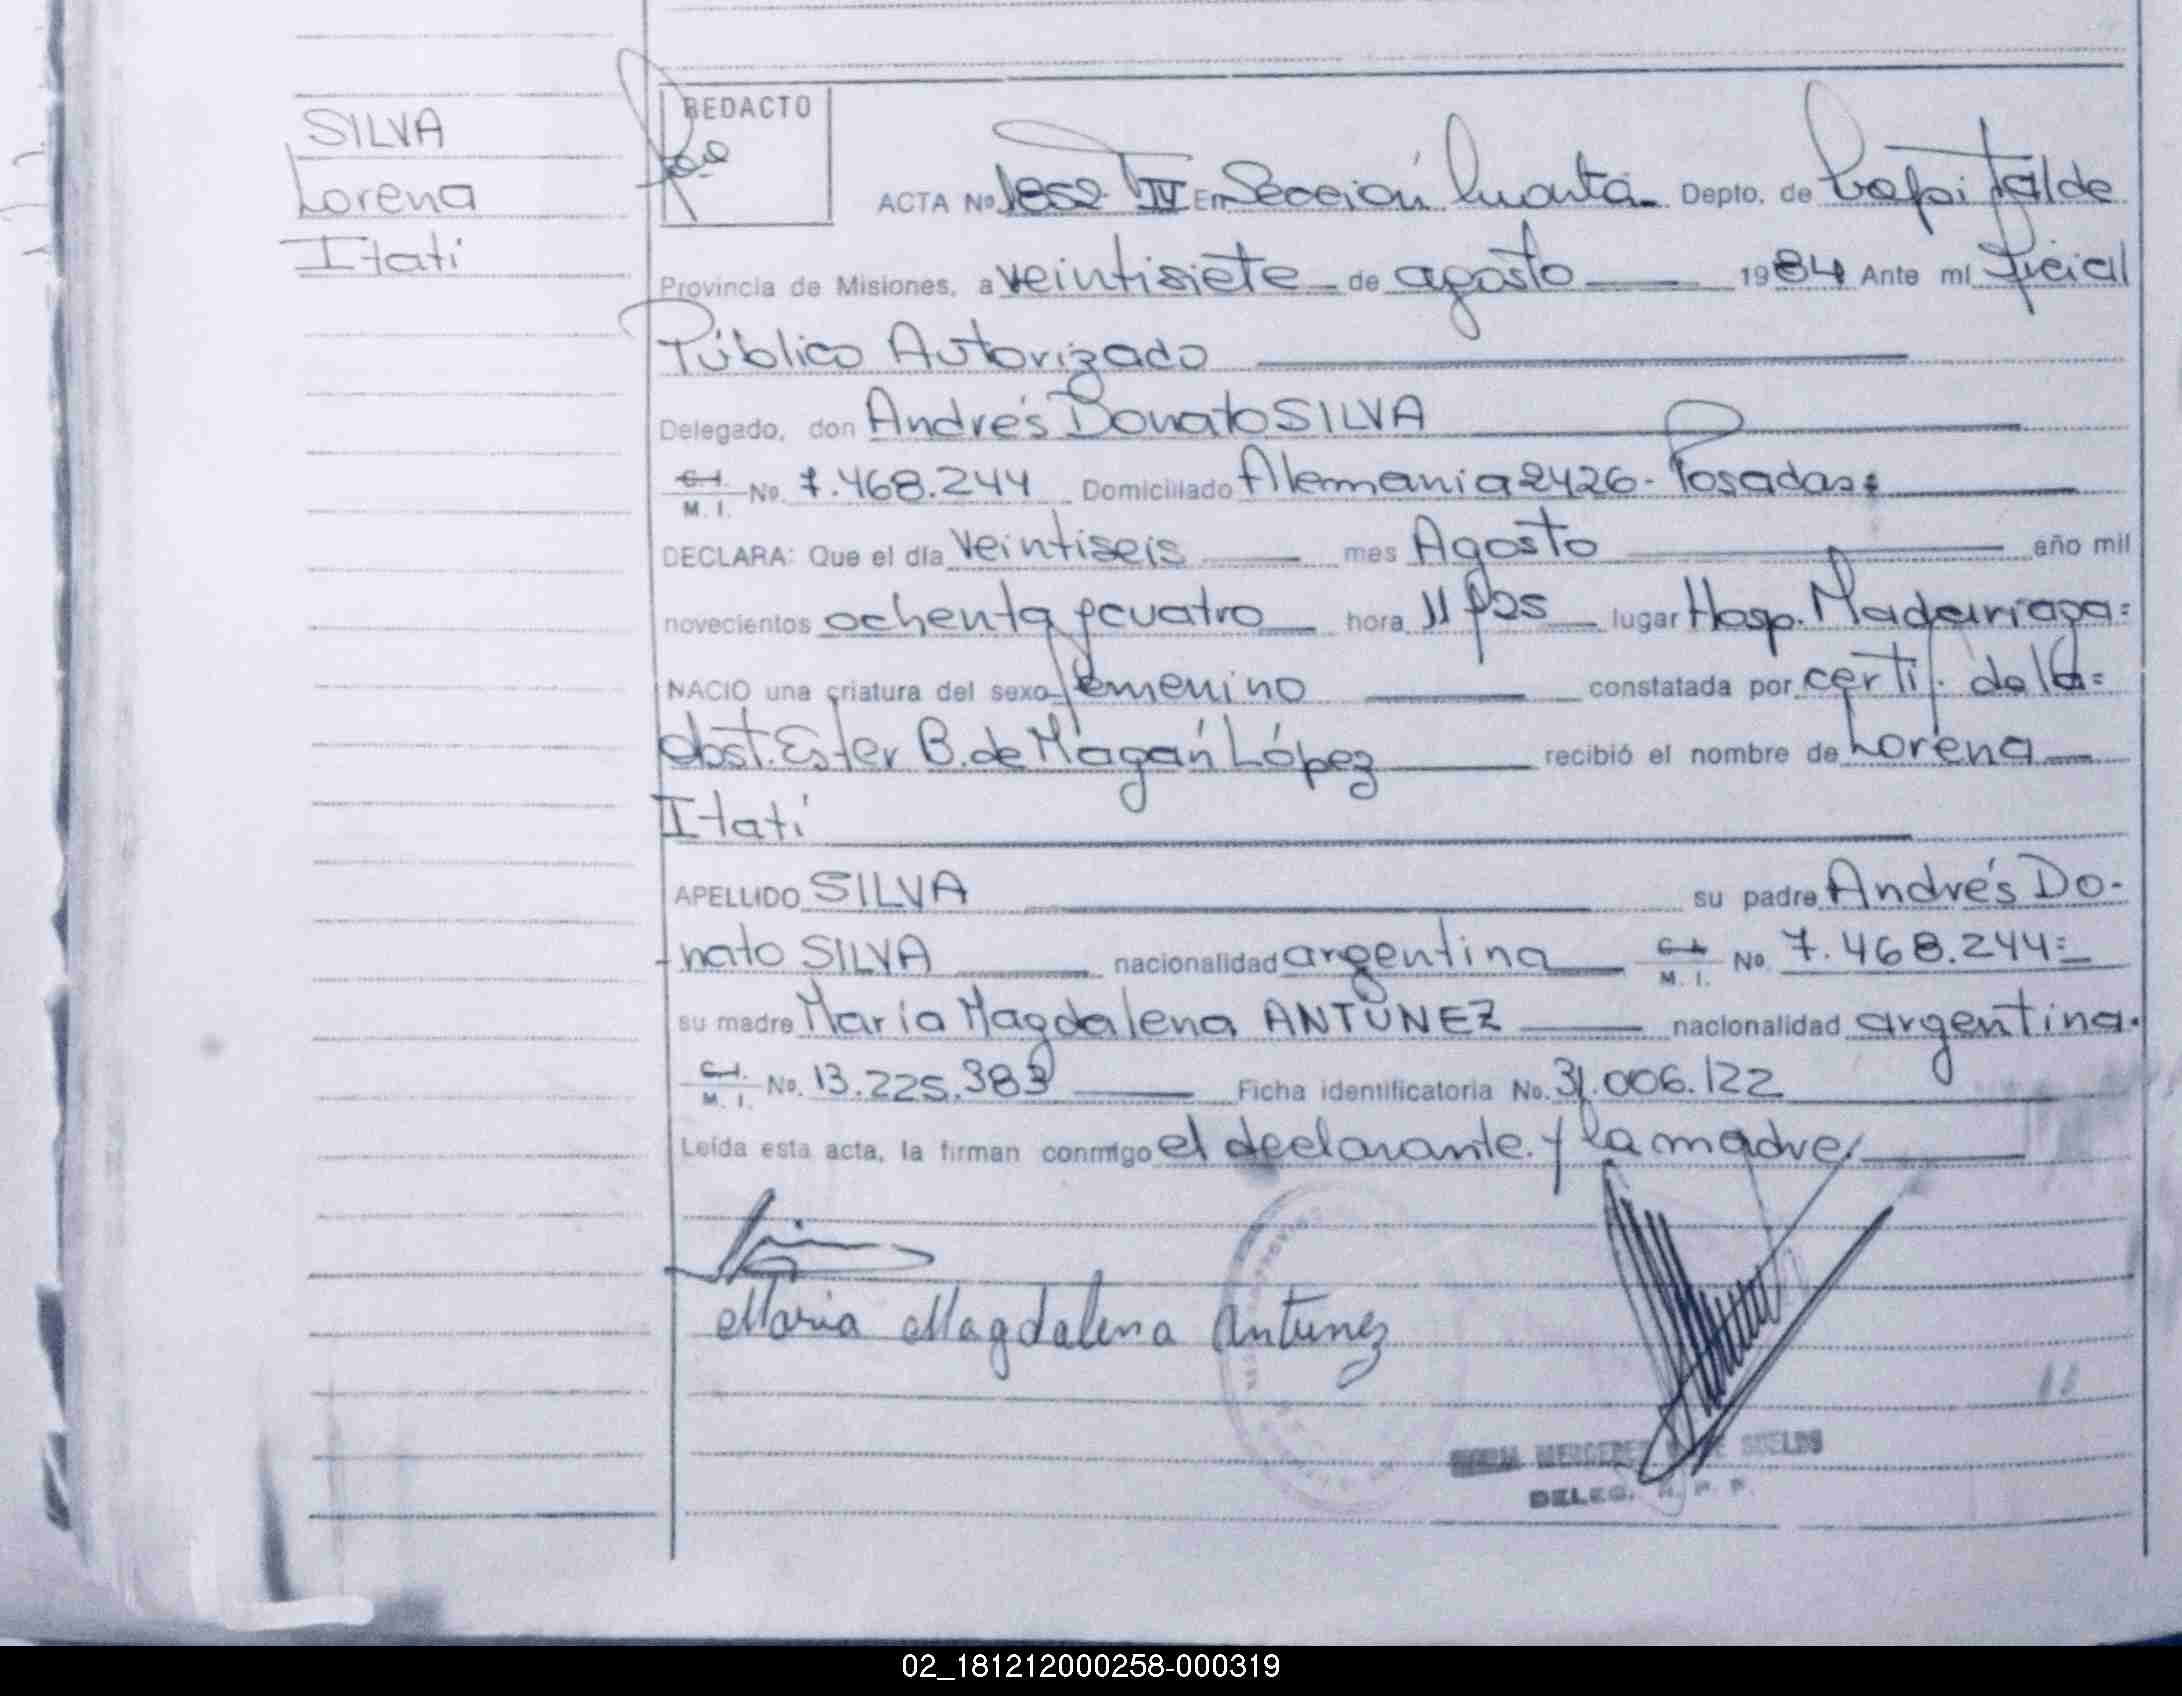 SILVA
Lorena
Itatí
REDACTO
ACTA Nº 1852 T IV En Sección Cuarta Depto. de Capital de
Provincia de Misiones, a veintisiete de agosto 1984 Ante mí Oficial
Público Autorizado
Delegado, don Andrés Donato SILVA
C.I. M. I. No. 7.468.244 Domiciliado Alemania 2426 - Posadas=
DECLARA: Que el día Veintiseis mes Agosto año mil
novecientos ochenta y cuatro hora 11 y 25 lugar Hosp. Madariaga=
NACIO una criatura del sexo femenino constatada por certif. de la=
obst. Ester B. de Magán López recibió el nombre de Lorena
Itatí
APELLIDO SILVA su padre Andrés Do-
-nato SILVA nacionalidad argentina C.I. M. I. No. 7.468.244=
su madre María Magdalena ANTÚNEZ nacionalidad argentina.
C.I. M. I. No. 13.225.383 Ficha identificatoria No. 31.006.122
Leída esta acta, la firman conmigo el declarante y la madre.
Maria Magdalena Antunez
MERCEDES DE SUELDO
DELEG. R. P. P.
02_181212000258-000319